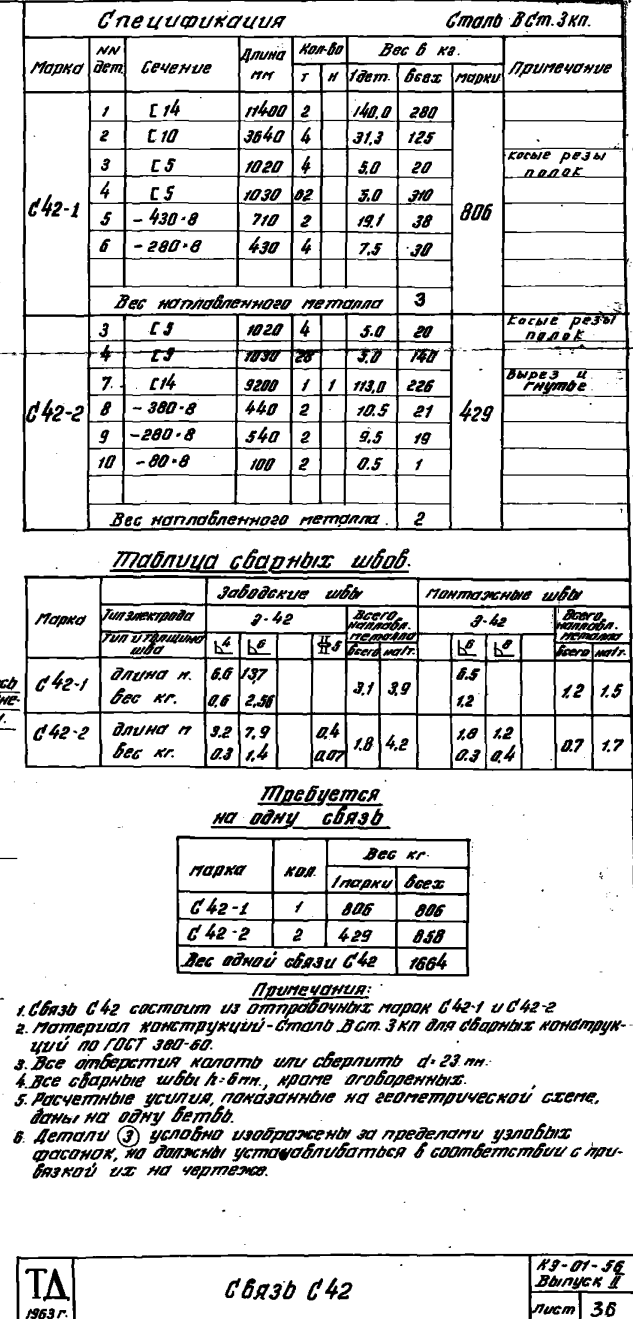 Спецификация Сталь ВСт.3кп.
Марка NN дет. Сечение Длина мм Кол-во т н Вес в кг. 1дет. всех марки Примечание
С42-1 806
1 [ 14 11400 2 140,0 280
2 [ 10 3640 4 31,3 125
3 [ 5 1020 4 5.0 20 косые резы полок
4 [ 5 1030 62 5.0 310
5 - 430×8 710 2 19.1 38
6 - 280×8 430 4 7.5 30
Вес наплавленного металла 3
С42-2 429
3 [ 5 1020 4 5.0 20 Косые резы полок
4 [ 5 1030 28 5.0 140
7. [ 14 9200 1 1 113,0 226 Вырез и гнутье
8 - 380×8 440 2 10.5 21
9 - 280×8 540 2 9.5 19
10 - 80×8 100 2 0.5 1
Вес наплавленного металла. 2
Таблица сварных швов.
Марка Заводские швы Монтажные швы
Тип электрода Э-42 Всего наплавл. металла Э-42 Всего наплавл. металла
Тип и толщина шва 4 6 5 всего на 1т. 6 8 всего на 1т.
С42-1 длина м. 6.6 13,7 3,1 3,9 6.5 1.2 1.5
вес кг. 0,6 2,56 1.2
С42-2 длина м 3.2 7,9 0,4 1.8 4,2 1,8 1.2 0.7 1.7
вес кг. 0.3 1,4 0,07 0.3 0,4
Требуется
на одну связь
марка кол. Вес кг. 1марки всех
С42-1 1 806 806
С42-2 2 429 858
Вес одной связи С42 1664
Примечания:
1. Связь С42 состоит из отправочных марок С42-1 и С42-2
2. Материал конструкций-Сталь ВСт.3кп для сварных конструк-
ций по ГОСТ 380-60.
3. Все отверстия колоть или сверлить d=23мм.
4. Все сварные швы h=6мм., кроме оговоренных.
5. Расчетные усилия, показанные на геометрической схеме,
даны на одну ветвь.
6. Детали 3 условно изображены за пределами узловых
фасонок, но должны устанавливаться в соответствии с при-
вязкой их на чертеже.
ТД
1963г.
Связь С42
КЭ-01-56
Выпуск II
лист 36